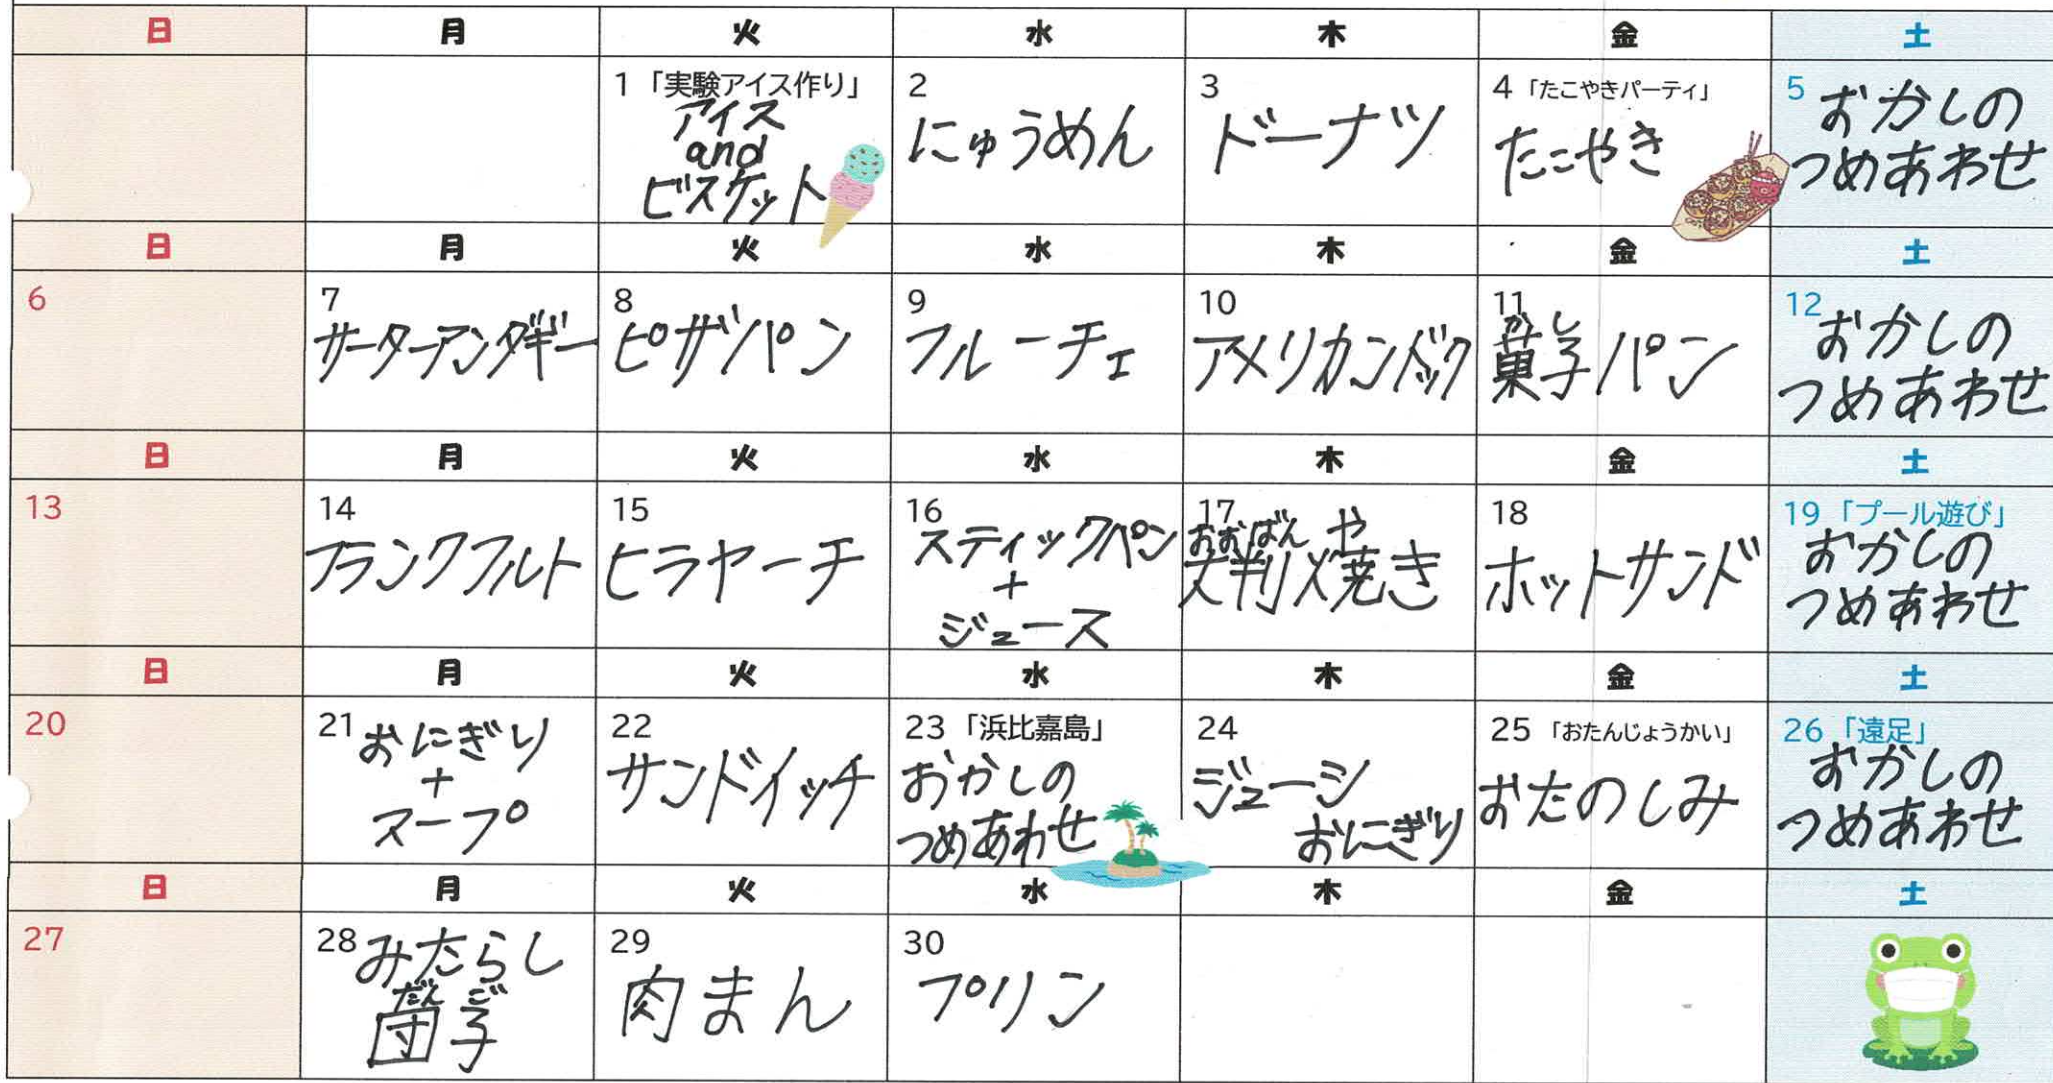 日 月 火 水 木 金 土
1 「実験アイス作り」
アイス
and
ビスケット
2
にゅうめん
3
ドーナツ
4 「たこやきパーティ」
たこやき
5
おかしの
つめあわせ
日 月 火 水 木 金 土
6
7
サーターアンダギー
8
ピザパン
9
フルーチェ
10
アメリカンドック
11
かし
菓子パン
12
おかしの
つめあわせ
日 月 火 水 木 金 土
13
14
フランクフルト
15
ヒラヤーチ
16
スティックパン
+
ジュース
17
おおばん や
大判焼き
18
ホットサンド
19 「プール遊び」
おかしの
つめあわせ
日 月 火 水 木 金 土
20
21
おにぎり
+
スープ
22
サンドイッチ
23 「浜比嘉島」
おかしの
つめあわせ
24
ジューシ
おにぎり
25 「おたんじょうかい」
おたのしみ
26 「遠足」
おかしの
つめあわせ
日 月 火 水 木 金 土
27
28
みたらし
だんご
団子
29
肉まん
30
プリン